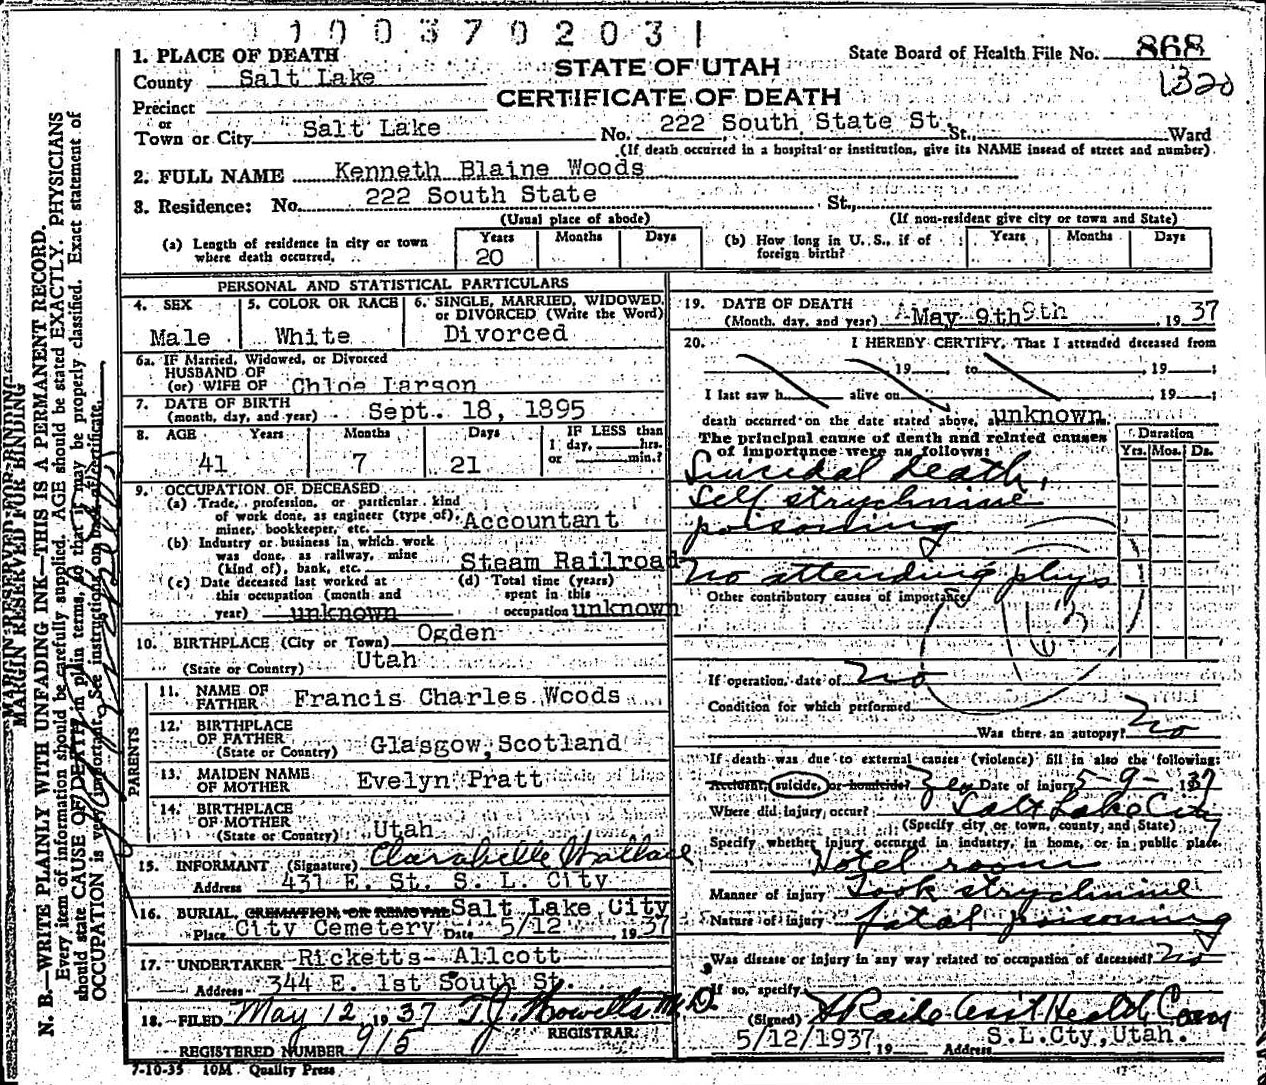 1 0 0 3 7 0 2 0 3 1
1. PLACE OF DEATH
County Salt Lake
Precinct
or
Town or City Salt Lake
STATE OF UTAH
CERTIFICATE OF DEATH
State Board of Health File No. 868
1320
No. 222 South State St. St., Ward
(If death occurred in a hospital or institution, give its NAME insead of street and number)
2. FULL NAME Kenneth Blaine Woods
3. Residence: No. 222 South State St.,
(Usual place of abode) (If non-resident give city or town and State)
(a) Length of residence in city or town where death occurred. Years 20 Months Days
(b) How long in U. S., if of foreign birth? Years Months Days
PERSONAL AND STATISTICAL PARTICULARS
4. SEX Male
5. COLOR OR RACE White
6. SINGLE, MARRIED, WIDOWED, or DIVORCED (Write the Word) Divorced
6a. IF Married, Widowed, or Divorced
HUSBAND OF
(or) WIFE OF Chloe Larson
7. DATE OF BIRTH
(month, day, and year) Sept. 18, 1895
8. AGE Years Months Days IF LESS than
1 day, hrs.
or min.?
41 7 21
9. OCCUPATION OF DECEASED
(a) Trade, profession, or particular kind
of work done, as engineer (type of),
miner, bookkeeper, etc. Accountant
(b) Industry or business in which work
was done, as railway, mine
(kind of), bank, etc. Steam Railroad
(c) Date deceased last worked at
this occupation (month and
year) unknown
(d) Total time (years)
spent in this
occupation unknown
10. BIRTHPLACE (City or Town) Ogden
(State or Country) Utah
PARENTS
11. NAME OF
FATHER Francis Charles Woods
12. BIRTHPLACE
OF FATHER
(State or Country) Glasgow, Scotland
13. MAIDEN NAME
OF MOTHER Evelyn Pratt
14. BIRTHPLACE
OF MOTHER
(State or Country) Utah
15. INFORMANT (Signature) Clarabelle Wallace
Address 431 E. St. S. L. City
16. BURIAL, CREMATION, OR REMOVAL Salt Lake City
Place City Cemetery Date 5/12, 1937
17. UNDERTAKER Ricketts- Allcott
Address 344 E. 1st South St.
18. FILED May 12 1937 T.J. Howells M.D.
REGISTRAR
REGISTERED NUMBER 915
7-10-35 10M Quality Press
19. DATE OF DEATH
(Month, day, and year) May 9th 9th, 1937
20. I HEREBY CERTIFY, That I attended deceased from
, 19 , to , 19 ;
I last saw h alive on , 19 ;
death occurred on the date stated above, at unknown m.
The principal cause of death and related causes
of importance were as follows:
Duration
Yrs. Mos. Ds.
Suicidal death,
Self strychnine
poisoning
No attending phys
Other contributory causes of importance
If operation, date of No
Condition for which performed
Was there an autopsy? No
If death was due to external causes (violence) fill in also the following:
Accident, suicide, or homicide? Yes Date of injury 5-9-1937
Where did injury occur? Salt Lake City
(Specify city or town, county, and State)
Specify whether injury occurred in industry, in home, or in public place.
Hotel room
Manner of injury Took strychnine
Nature of injury fatal poisoning
Was disease or injury in any way related to occupation of deceased? No
If so, specify
(Signed) Asst Health Com
5/12/1937 19 Address S.L.Cty, Utah.
MARGIN RESERVED FOR BINDING
MARGIN RESERVED FOR BINDING
N. B.—WRITE PLAINLY WITH UNFADING INK—THIS IS A PERMANENT RECORD.
Every item of information should be carefully supplied. AGE should be stated EXACTLY. PHYSICIANS
should state CAUSE OF DEATH in plain terms, so that it may be properly classified. Exact statement of
OCCUPATION is very important. See instructions on back of certificate.